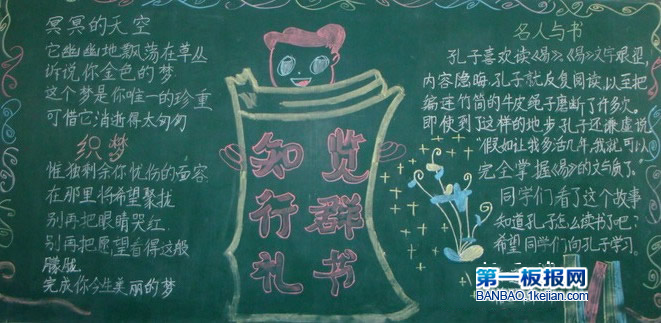 冥冥的天空
它幽幽地飘荡在草丛
诉说你金色的梦
这个梦是你唯一的珍重
可惜它消逝得太匆匆
织梦
惟独剩余你忧伤的面容
在那里将希望聚拢
别再把眼睛哭红
别再把愿望看得这般
朦胧
完成你今生美丽的梦
览群书
知行礼
名人与书
孔子喜欢读《易》,《易》文字艰涩,
内容隐晦,孔子就反复阅读,以至把
编连竹简的牛皮绳子磨断了许多次。
即使到了这样的地步,孔子还谦虚说
"假如让我多活几年,我就可以
完全掌握《易》的文与质了。
同学们看了这个故事
知道孔子怎么读书了吧?
希望同学们向孔子学习。
第一板报网
BANBAO.1kejian.com